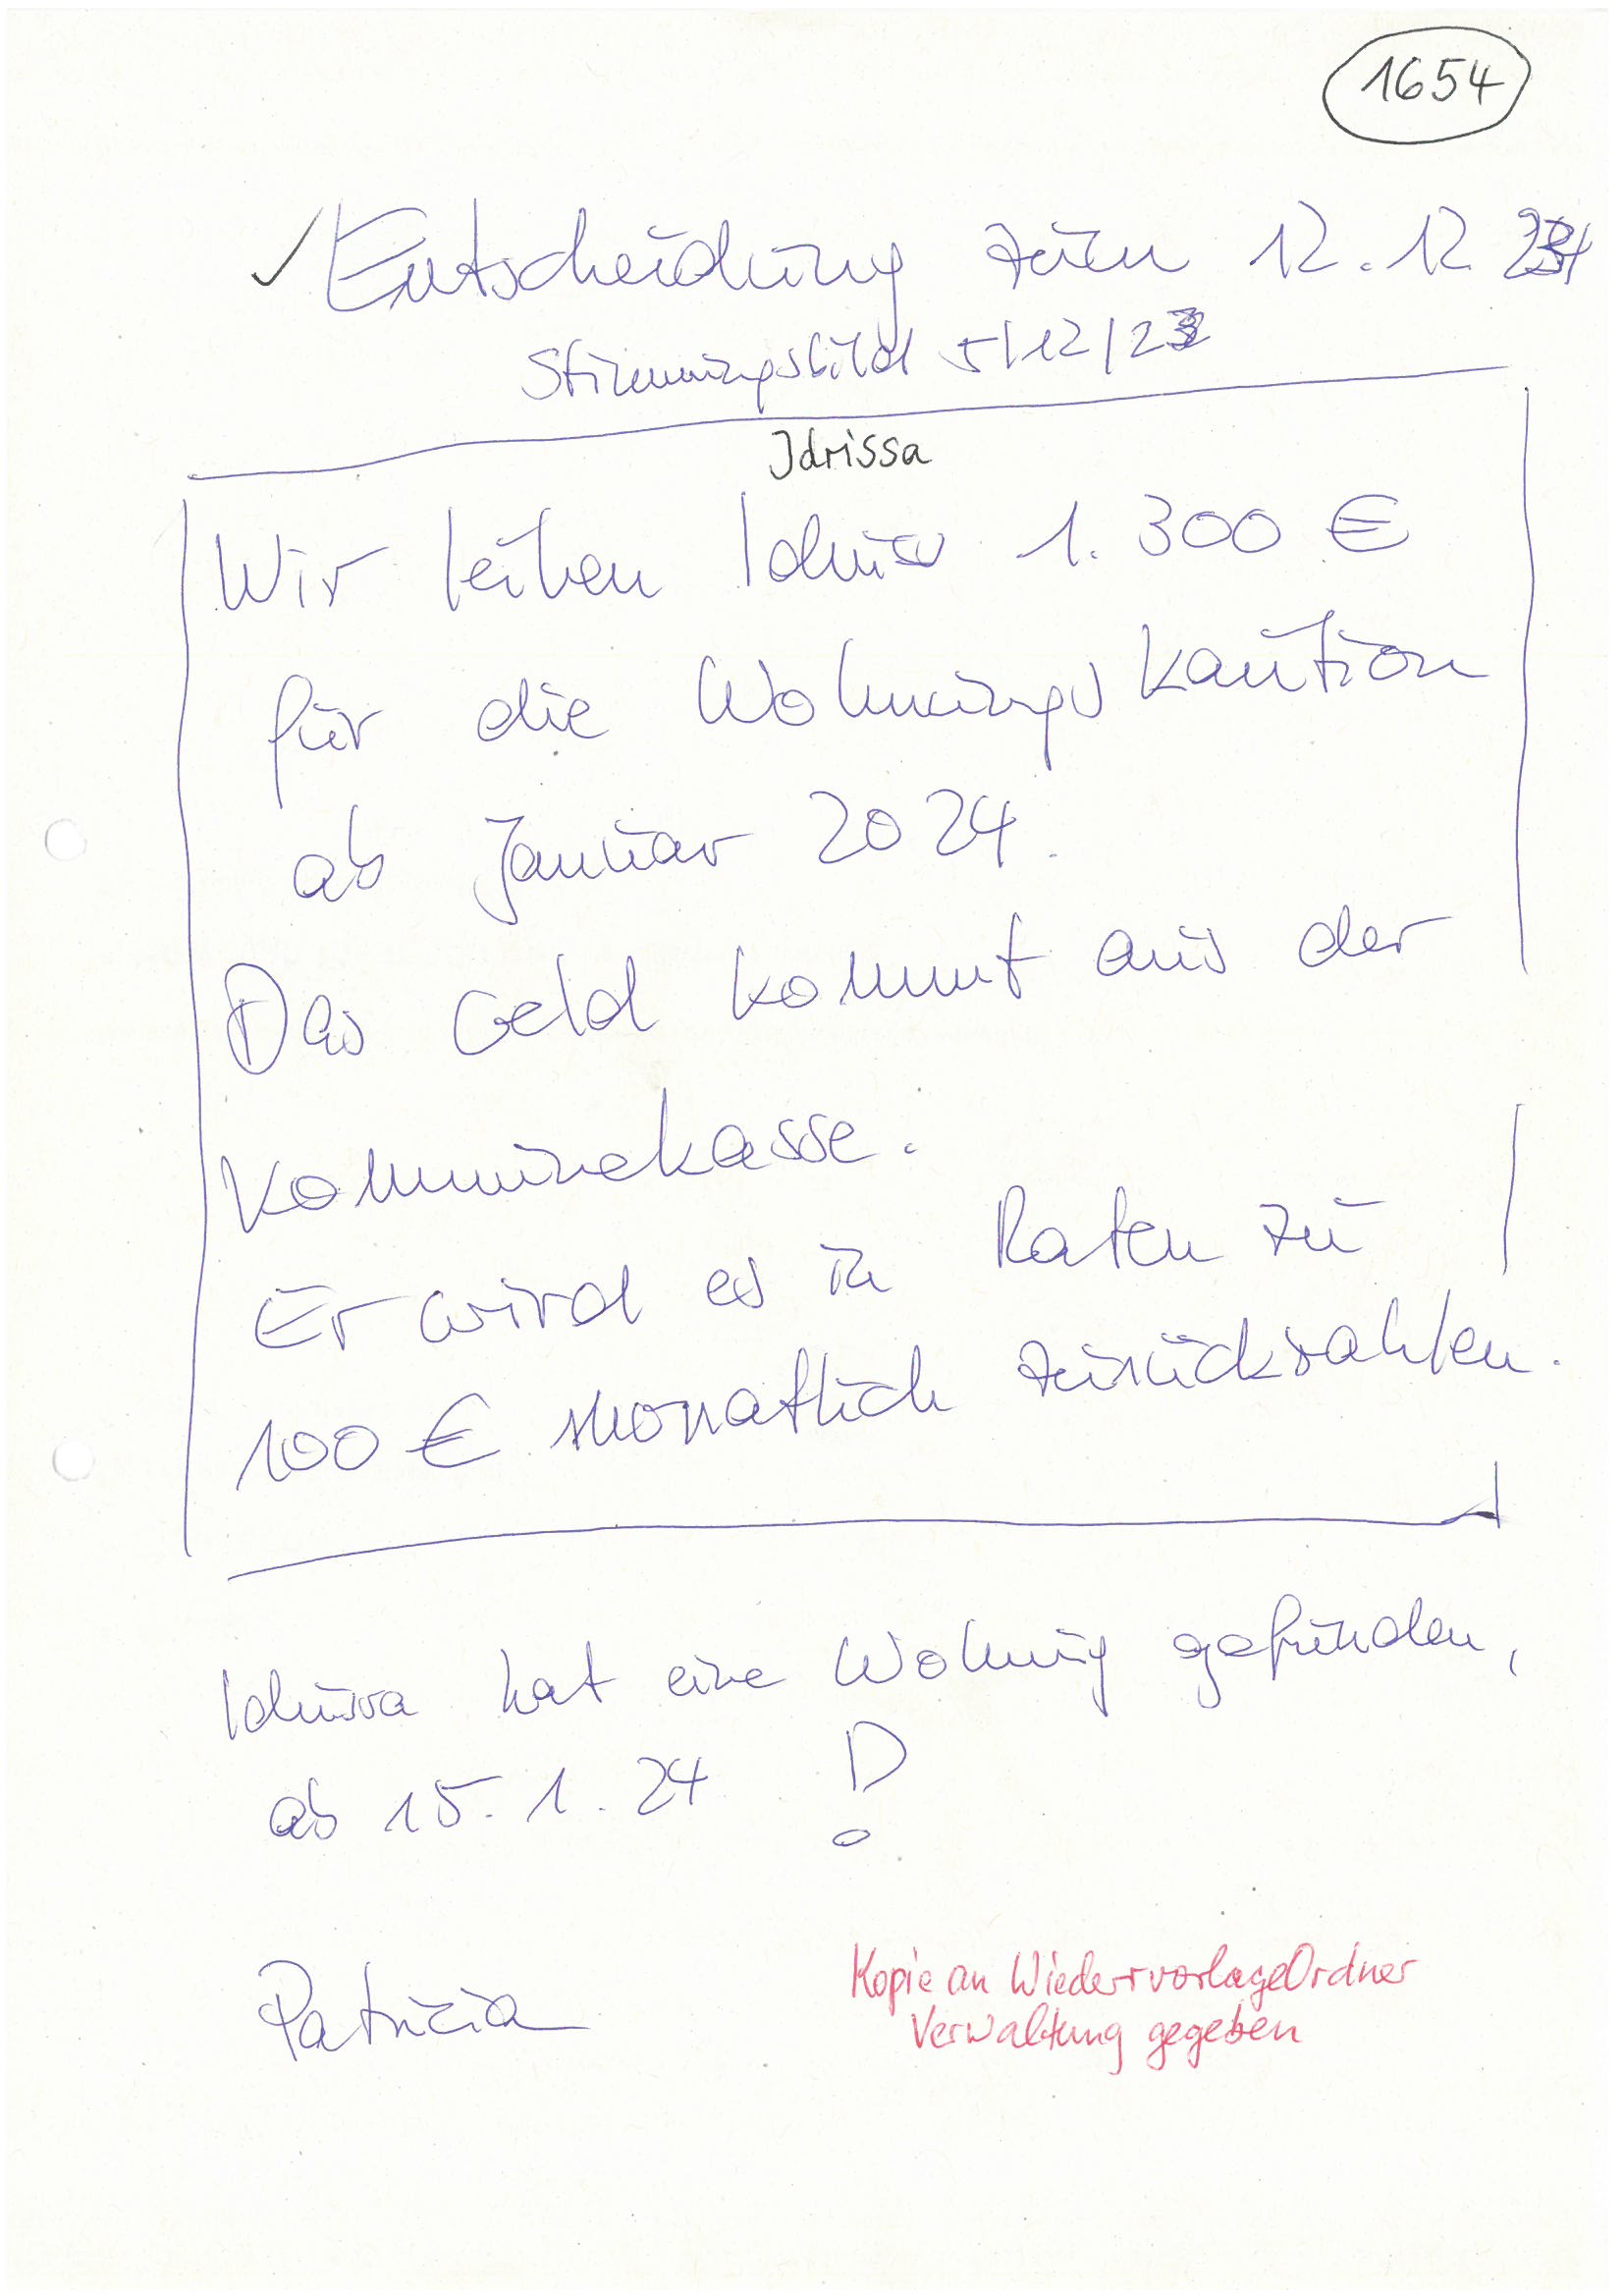 1654
✓ Entscheidung zum 12.12.23
Stimmungsbild 5/12/23
Idrissa
Wir leihen Idrissa 1.300 €
für die Wohnungskaution
ab Januar 2024.
Das Geld kommt aus der
Kommunekasse.
Er wird es in Raten zu
100 € monatlich zurückzahlen.
Idrissa hat eine Wohnung gefunden,
ab 15.1.24 !
Patricia
Kopie an WiedervorlageOrdner
Verwaltung gegeben